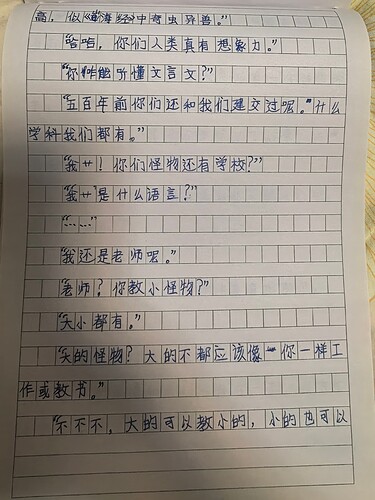 高，似《山海经》中奇虫异兽。”
“哈哈，你们人类真有想象力。”
“你咋能听懂文言文？”
“五百年前你们还和我们建交过呢。”什么
学科我们都有。”
“我艹！你们怪物还有学校？”
“‘我艹’是什么语言？”
“……”
“我还是老师呢。”
“老师？你教小怪物？”
“大小都有。”
“大的怪物？大的不都应该像你一样工
作或教书。”
“不不不，大的可以教小的，小的也可以